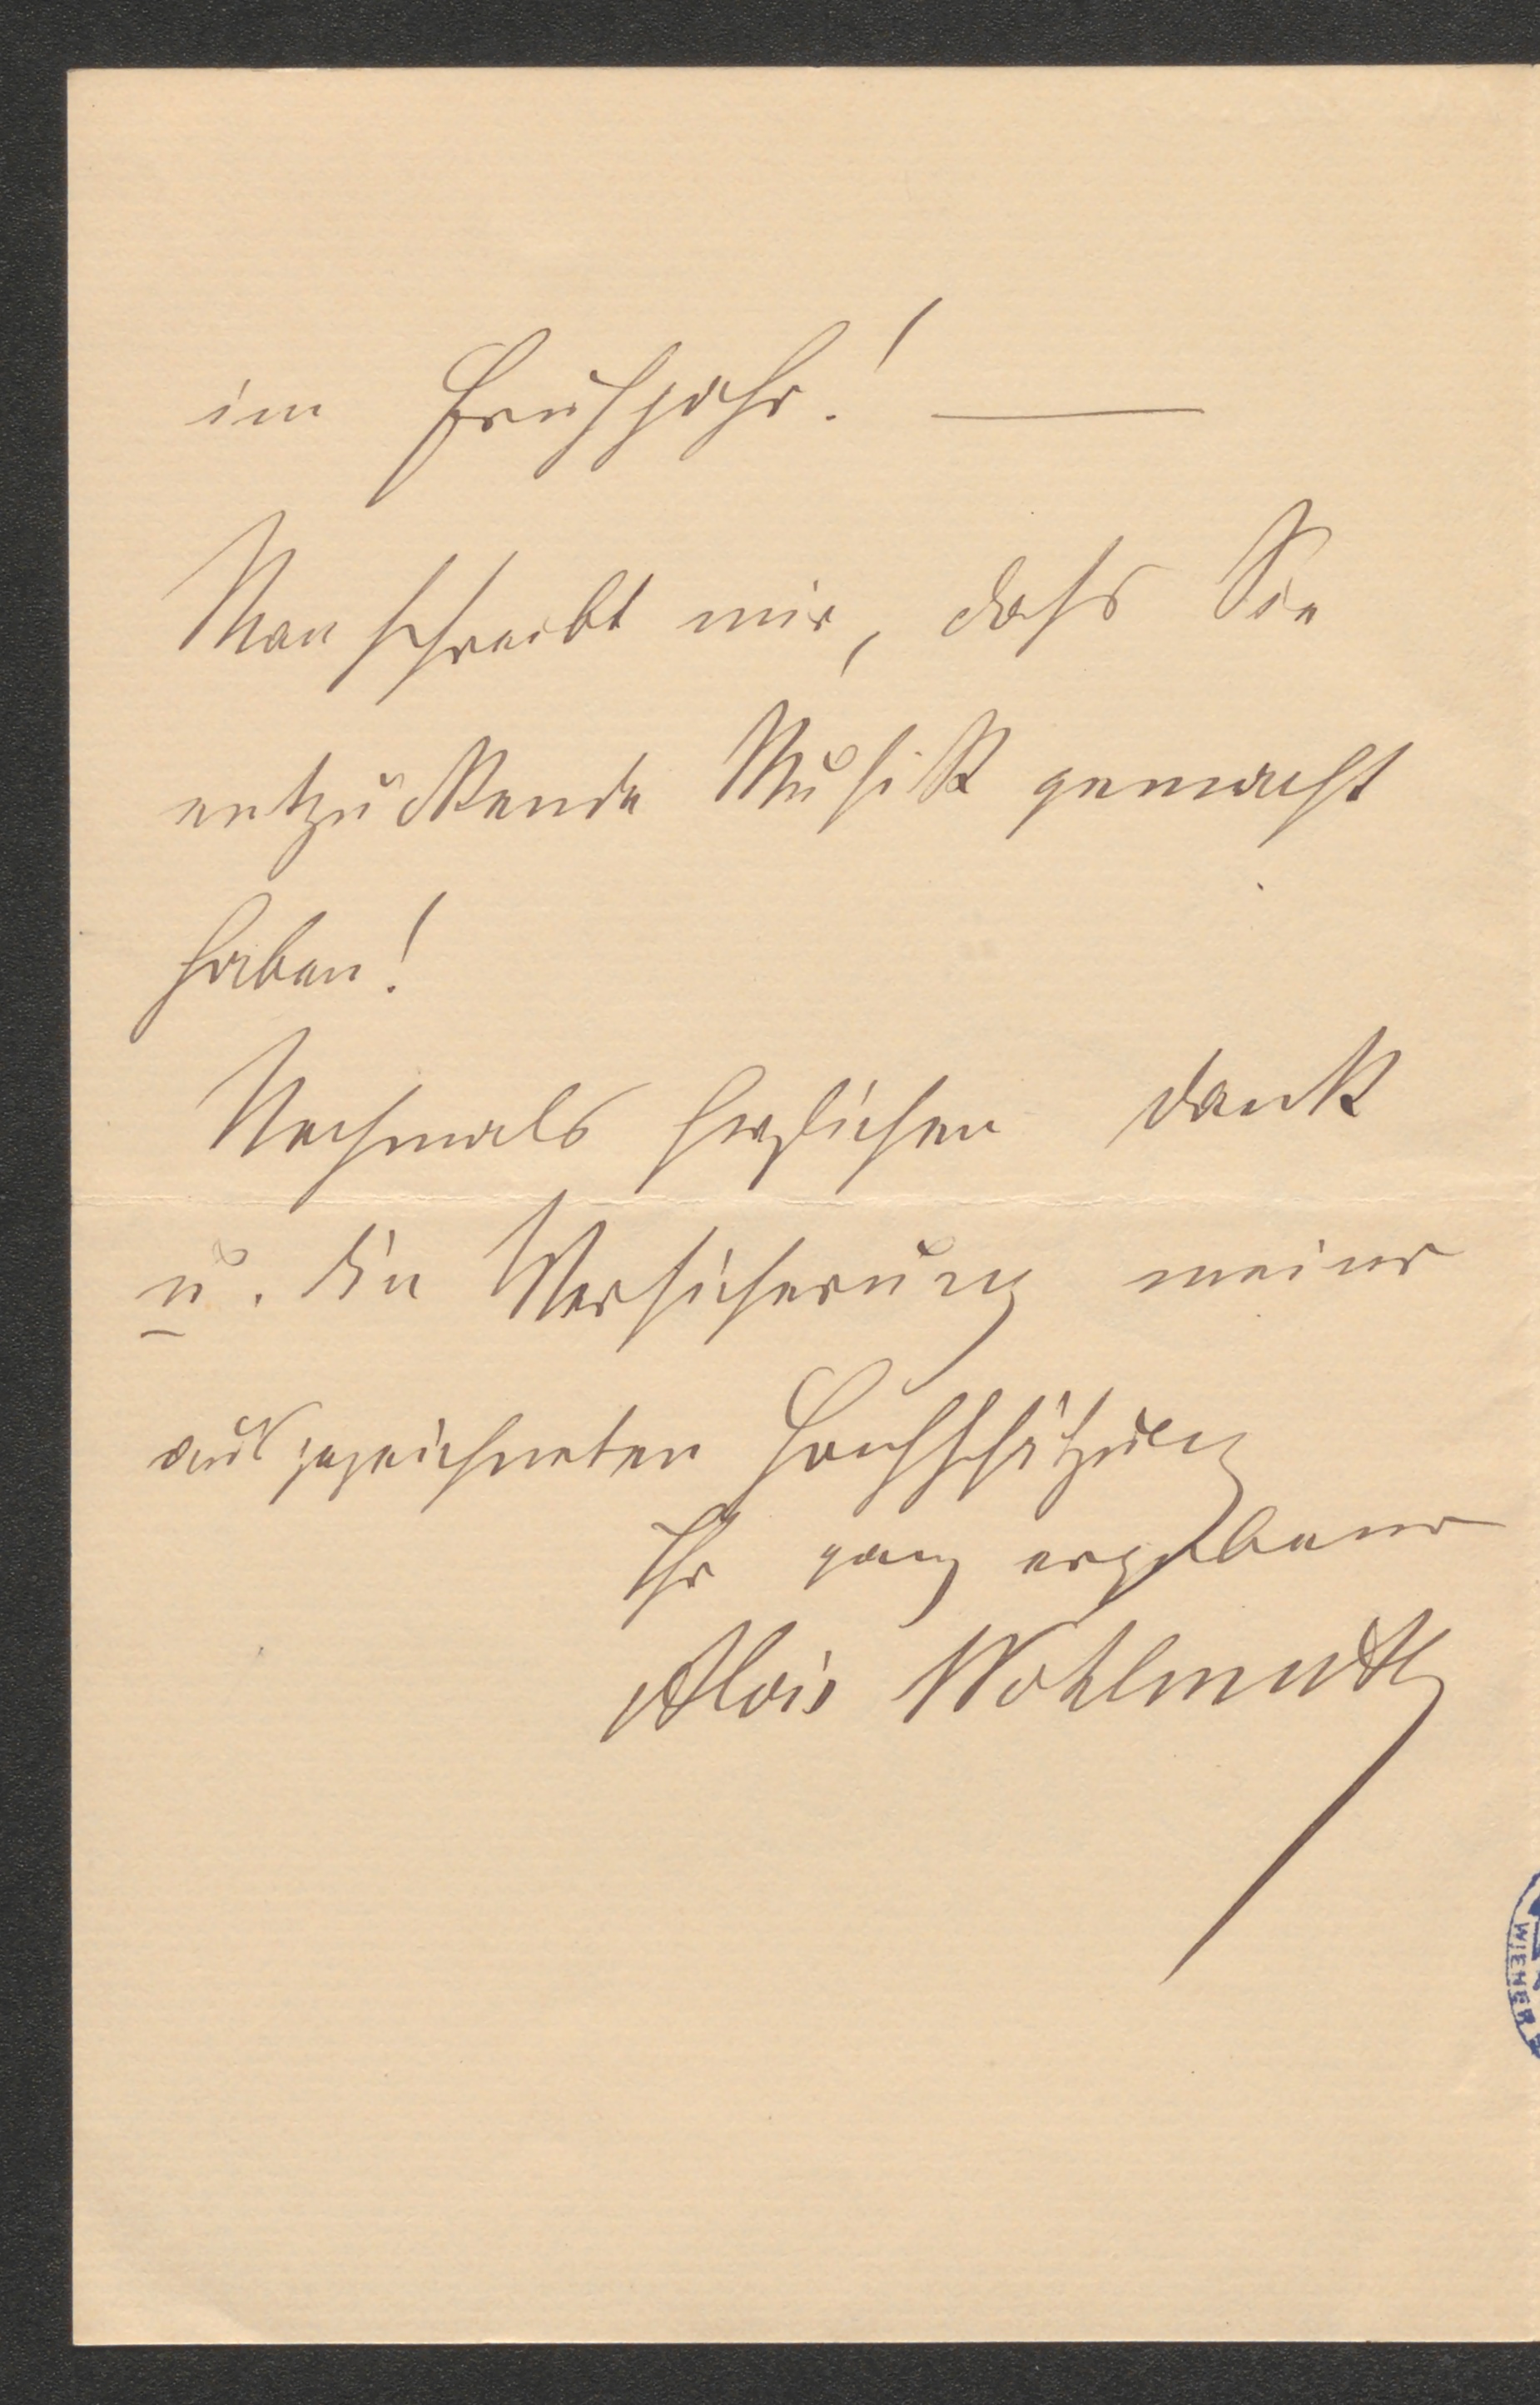 im Frühjahr! —
Man schreibt mir, dass Sie
entzückende Musik gemacht
haben!
Nochmals herzlichen Dank
u. die Versicherung meiner
ausgezeichneten Hochschätzung
Ihr ganz ergebener
Alois Wohlmuth
WIENER